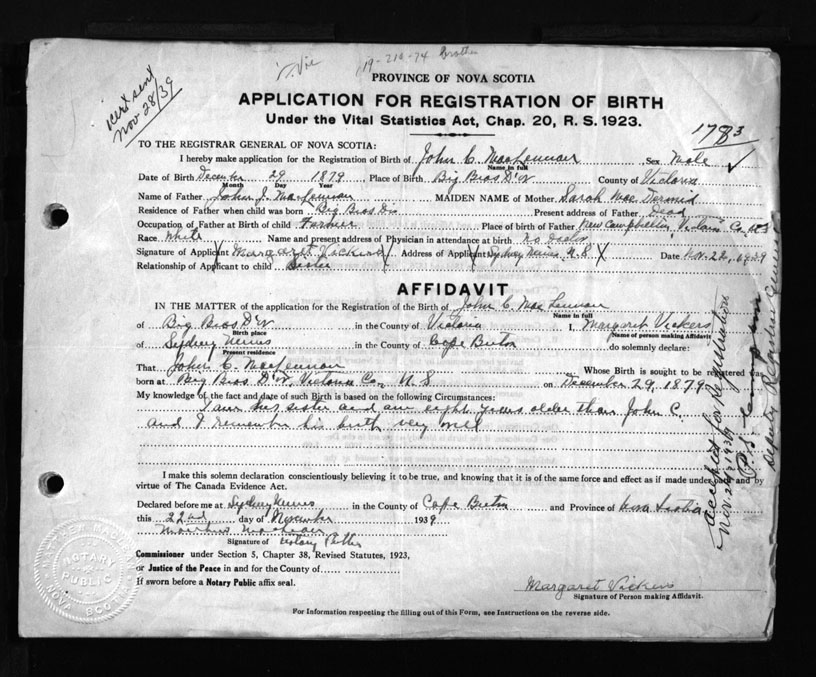 19-210-74 brother
cert sent
Nov 28/39
PROVINCE OF NOVA SCOTIA
APPLICATION FOR REGISTRATION OF BIRTH
Under the Vital Statistics Act, Chap. 20, R. S. 1923.
1783
TO THE REGISTRAR GENERAL OF NOVA SCOTIA:
I hereby make application for the Registration of Birth of John C. MacLennan Sex Male
Name in full
Date of Birth December 29 1879 Place of Birth Big Bras D'or County of Victoria
Month Day Year
Name of Father John J. MacLennan MAIDEN NAME of Mother Sarah Mac Dermid
Residence of Father when child was born Big Bras Dor Present address of Father Dead
Occupation of Father at Birth of child Farmer Place of birth of Father New Campbellton, Victoria Co NS
Race White Name and present address of Physician in attendance at birth no doctor
Signature of Applicant Margaret Vickers Address of Applicant Sydney Mines N.S. Date Nov. 22, 1939
Relationship of Applicant to child Sister
AFFIDAVIT
IN THE MATTER of the application for the Registration of the Birth of John C. Mac Lennan
Name in full
of Big Bras D'or in the County of Victoria I, Margaret Vickers
Birth place Name of person making Affidavit
of Sydney Mines in the County of Cape Breton do solemnly declare:
Present residence
That John C. MacLennan Whose Birth is sought to be registered was
born at Big Bras D'or, Victoria Co, N.S on December 29, 1879
My knowledge of the fact and date of such Birth is based on the following Circumstances:
I am his sister and am eight years older than John C.
and I remember his birth very well
I make this solemn declaration conscientiously believing it to be true, and knowing that it is of the same force and effect as if made under oath and by
virtue of The Canada Evidence Act.
Declared before me at Sydney Mines in the County of Cape Breton and Province of Nova Scotia
this 22nd day of November 1939
Signature of Notary Public
Commissioner under Section 5, Chapter 38, Revised Statutes, 1923,
or Justice of the Peace in and for the County of
If sworn before a Notary Public affix seal.
NOTARY PUBLIC
NOVA SCOTIA
Margaret Vickers
Signature of Person making Affidavit.
For Information respecting the filling out of this Form, see Instructions on the reverse side.
Accepted for Registration
Nov. 28 1939
Deputy Registrar General